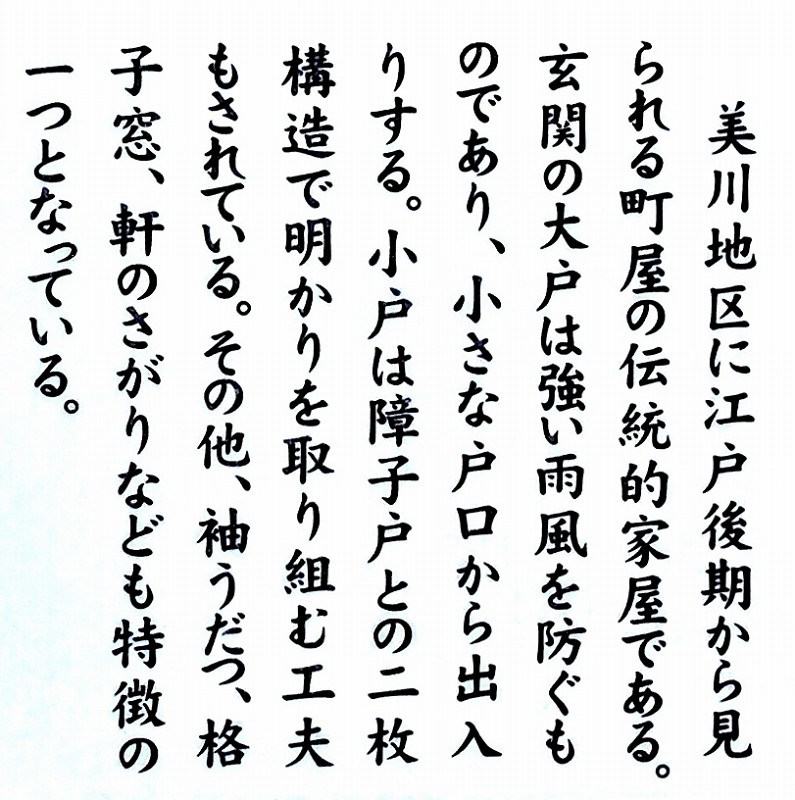 美川地区に江戸後期から見
られる町屋の伝統的家屋である。
玄関の大戸は強い雨風を防ぐも
のであり、小さな戸口から出入
りする。小戸は障子戸との二枚
構造で明かりを取り組む工夫
もされている。その他、袖うだつ、格
子窓、軒のさがりなども特徴の
一つとなっている。